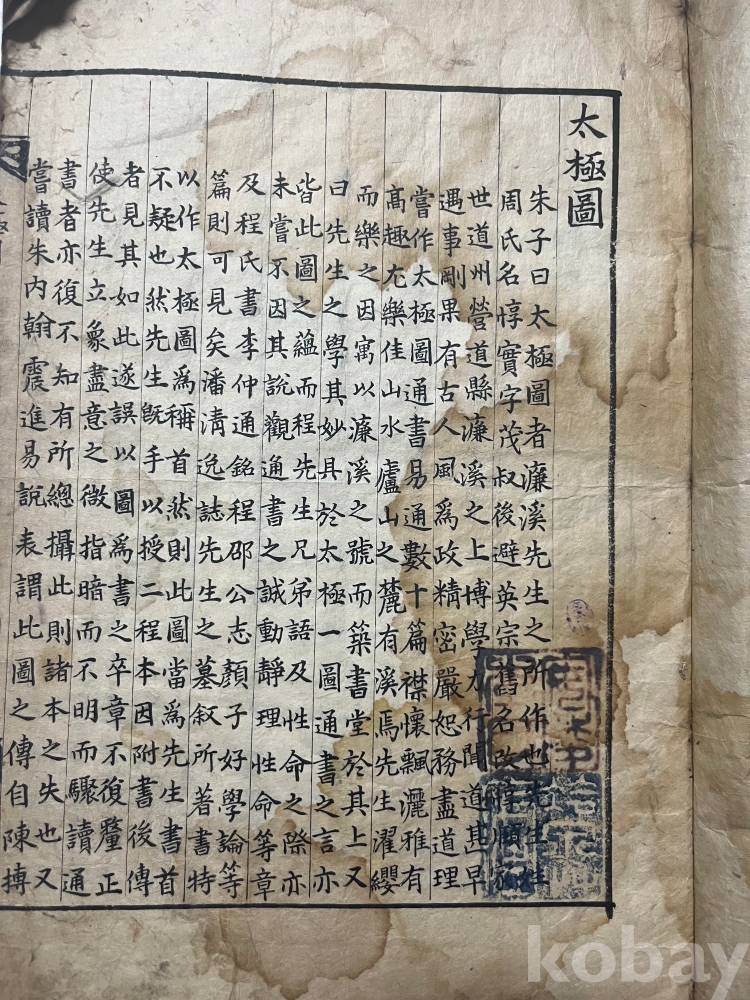 太極圖
朱子曰太極圖者濂溪先生之所作也先生姓
周氏名惇實字茂叔後避英宗舊名改惇頤家
世道州營道縣濂溪之上博學力行聞道甚早
遇事剛果有古人風爲政精密嚴恕務盡道理
嘗作太極圖通書易通數十篇襟懷飄灑雅有
高趣尤樂佳山水廬山之麓有溪焉先生濯纓
而樂之因寓以濂溪之號而築書堂於其上又
曰先生之學其妙具於太極一圖通書之言亦
皆此圖之蘊而程先生兄弟語及性命之際亦
未嘗不因其說觀通書之誠動靜理性命等章
及程氏書李仲通銘程邵公志顏子好學論等
篇則可見矣潘淸逸誌先生之墓叙所著書特
以作太極圖爲稱首然則此圖當爲先生書首
不疑也然先生旣手以授二程本因附書後傳
者見其如此遂誤以圖爲書之卒章不復釐正
使先生立象盡意之微指暗而不明而驟讀通
書者亦復不知有所總攝此則諸本之失也又
嘗讀朱內翰震進易說表謂此圖之傳自陳摶
kobay